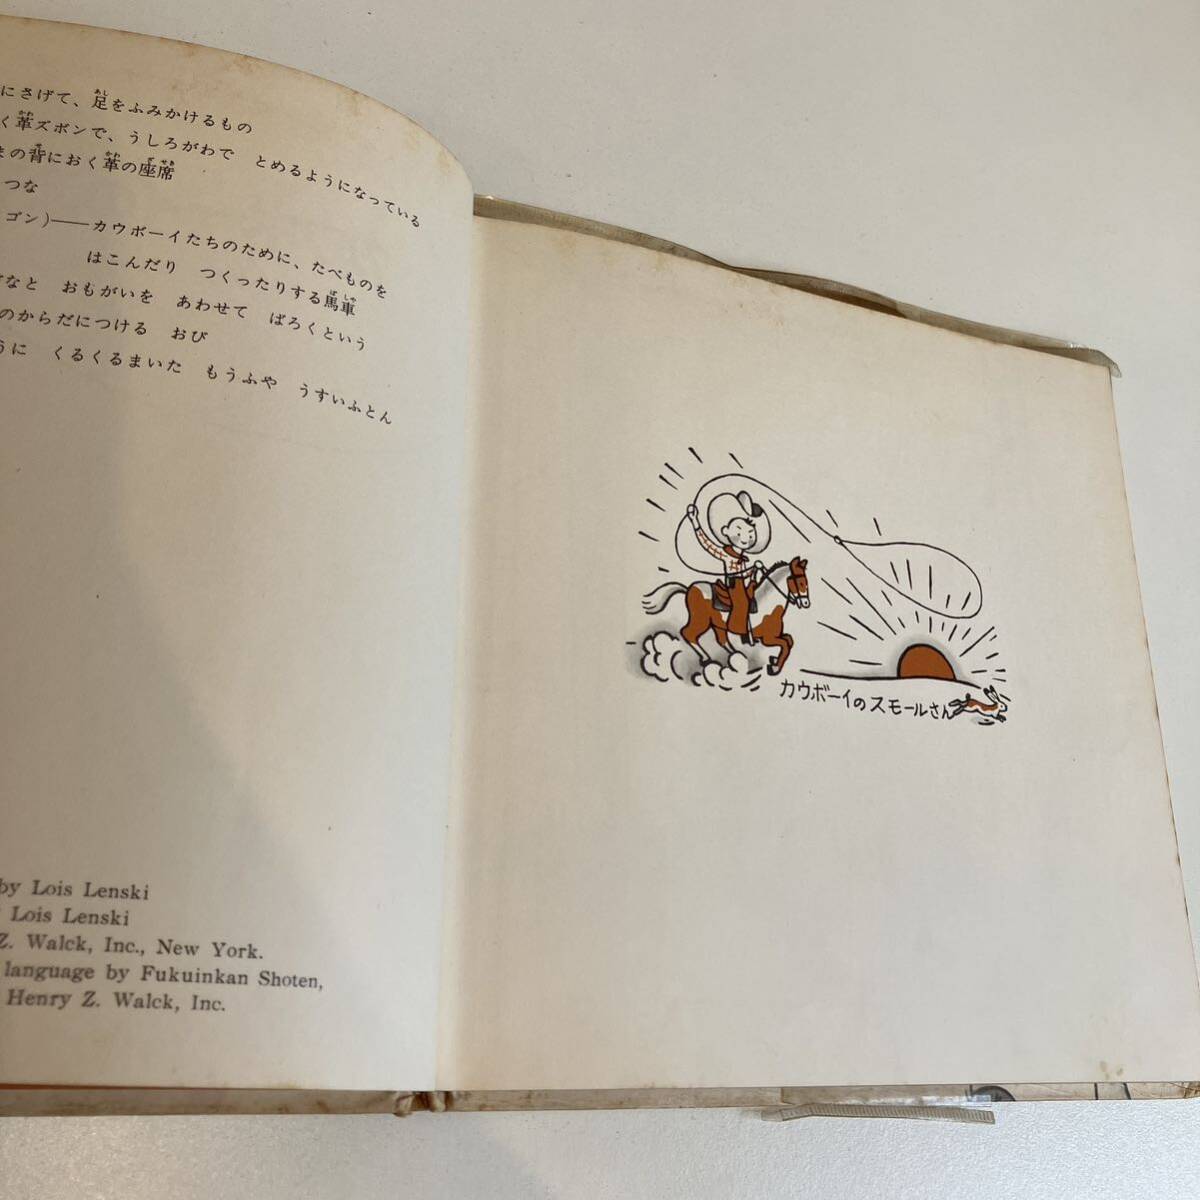 にさげて、足をふみかけるもの
く革ズボンで、うしろがわで とめるようになっている
まの背におく革の座席
つな
ゴン)——カウボーイたちのために、たべものを
はこんだり つくったりする馬車
なと おもがいを あわせて ばろくという
のからだにつける おび
うに くるくるまいた もうふや うすいふとん
by Lois Lenski
Lois Lenski
Z. Walck, Inc., New York.
language by Fukuinkan Shoten,
Henry Z. Walck, Inc.
カウボーイのスモールさん